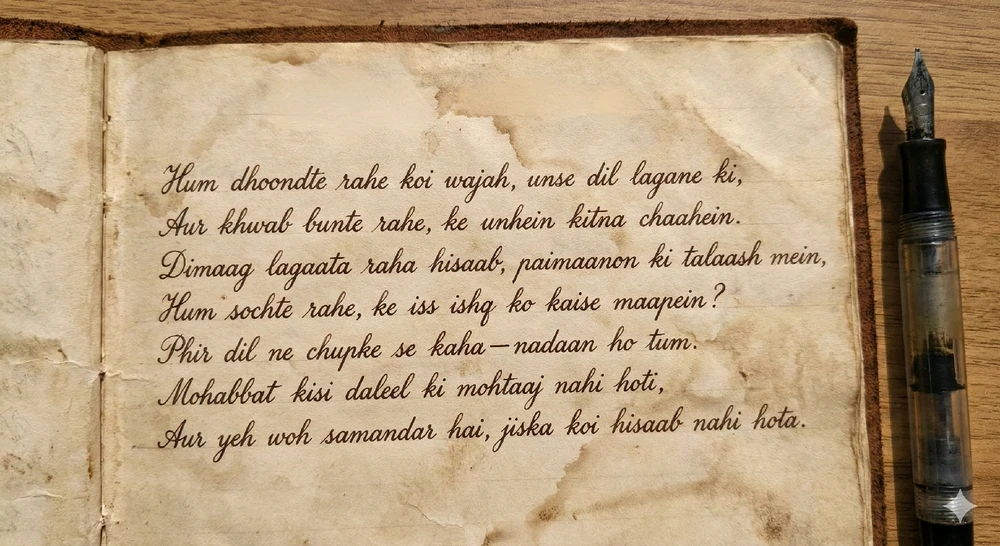 Hum dhoondte rahe koi wajah, unse dil lagane ki,
Aur khwab bunte rahe, ke unhein kitna chaahein.
Dimaag lagaata raha hisaab, paimaanon ki talaash mein,
Hum sochte rahe, ke iss ishq ko kaise maapein?
Phir dil ne chupke se kaha—nadaan ho tum.
Mohabbat kisi daleel ki mohtaaj nahi hoti,
Aur yeh woh samandar hai, jiska koi hisaab nahi hota.